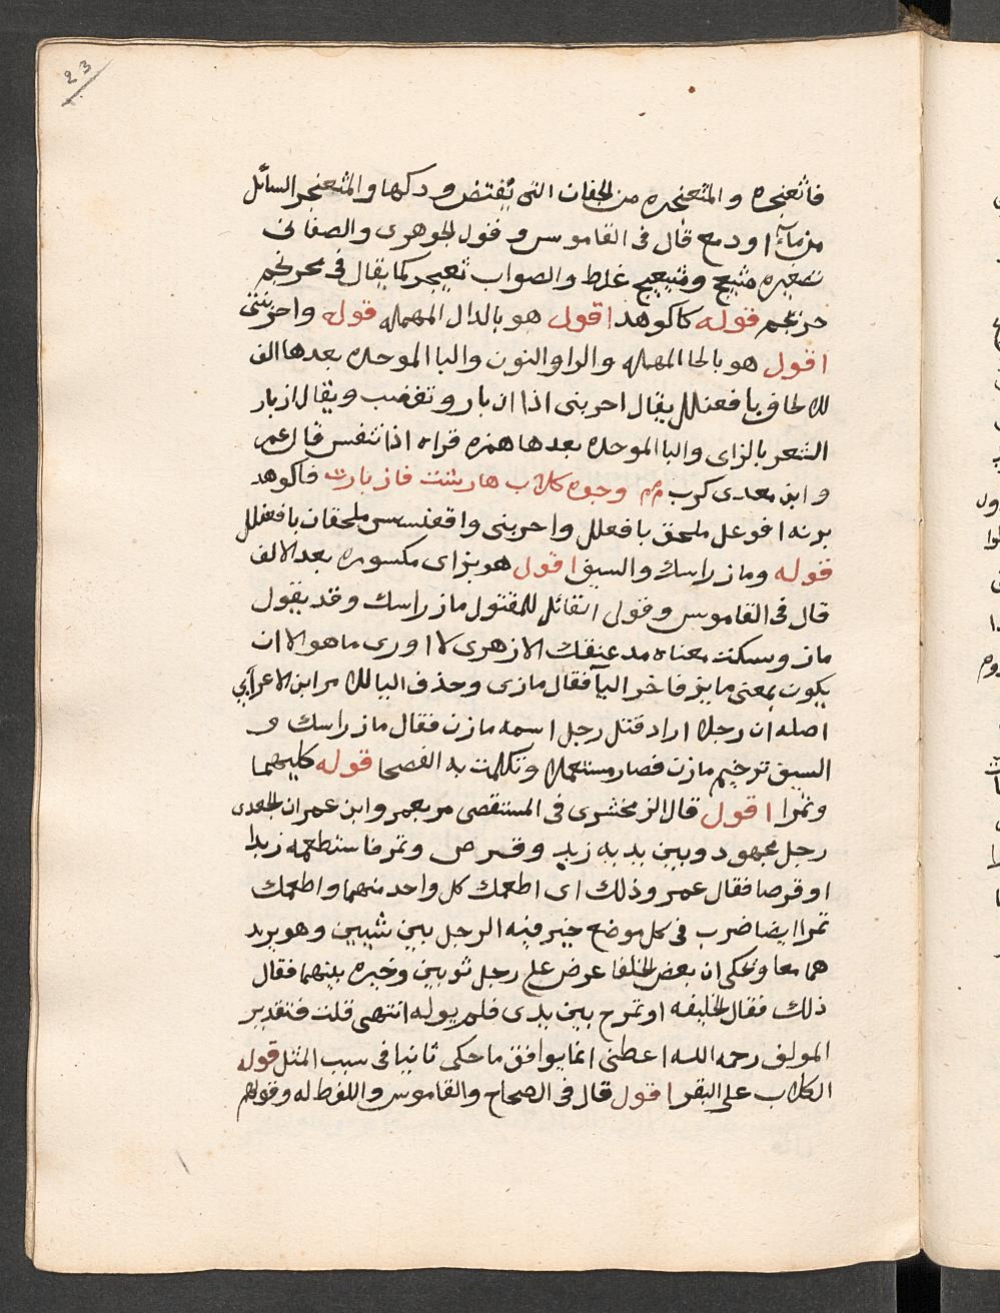 23
فاثعنجره والمثعنجره من الجفان التى يفتض ودكها والمثعنجر السائل
من ماء او دمع قال فى القاموس وقول الجوهرى والصغانى
تصغيره مثيعج ومثيعيج غلط والصواب ثعيجر كما يقال فى محرنجم
حرنجم قوله كاكوهد اقول هو بالدال المهمله قوله واحربنى
اقول هو بالحا المهمله والرا والنون والبا الموحده بعدها الف
للالحاق بافعنلل يقال احربنى اذا ازبار وتغضب ويقال ازبار
الشعر بالزاى والبا الموحده بعدها همزه قراه اذا تنفس قال عمر
وابن معدى كرب وجوه كلاب هارشت فازبارت فاكوهد
بزنه افوعل ملحق بافعلل واحربنى واقعنسس ملحقان بافعنلل
قوله وماز راسك والسيف اقول هو بزاى مكسوره بعد الالف
قال فى القاموس وقول القائل للمقتول ماز راسك وقد يقول
ماز وسكت معناه مد عنقك الازهرى لا اورى ما هو الا ان
يكون بمعنى مايز فاخر اليآ فقال مازى وحذف اليا للامر ابن الاعرابي
اصله ان رجلا اراد قتل رجل اسمه مازن فقال ماز راسك و
السيف ترخيم مازن فصار مستعملا وتكلمت به الفصحا قوله كليهما
وتمرا اقول قال الزمخشرى فى المستقصى مر بعمرو ابن عمران الجعدى
رجل مجهود وبين يديه زبد وقرص وتمر فاستطعمه زبدا
او قرصا فقال عمر وذلك اى اطعمك كل واحد منهما واطعمك
تمرا ايضا ضرب فى كل موضع خير فيه الرجل بين شيين وهو يريد
هما معا ويحكى ان بعض الخلفا عرض على رجل ثوبين وخيره بينهما فقال
ذلك فقال الخليفه او تمزح بين يدى فلم يوله انتهى قلت فتقدير
المولف رحمه الله اعطنى انما يوافق ما حكى ثانيا فى سبب المثل قوله
الكلاب على البقر اقول قال فى الصحاح والقاموس واللفظ له وقولهم